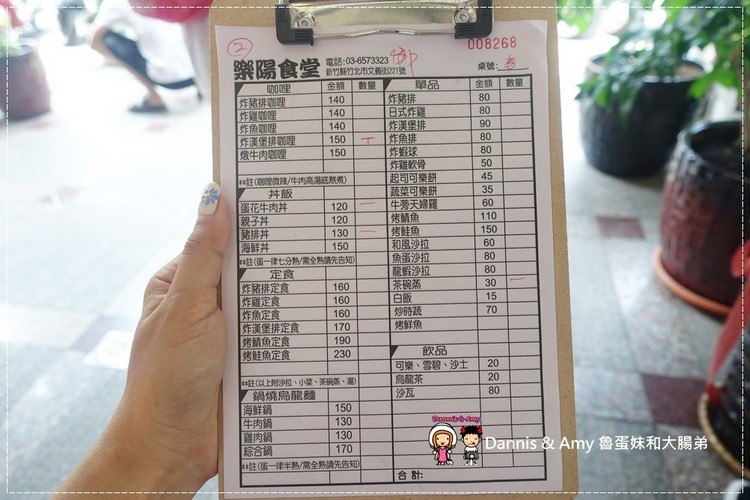 ②
008268
樂陽食堂
電話:03-6573323
新竹縣竹北市文義街221號
桌號:
咖哩 金額 數量
炸豬排咖哩 140
炸雞咖哩 140
炸魚咖哩 140
炸漢堡排咖哩 150 一
燉牛肉咖哩 150
**註(咖哩微辣/牛肉高湯底熬煮)
丼飯
蛋花牛肉丼 120 一
親子丼 120
豬排丼 130 一
海鮮丼 150
**註(蛋一律七分熟/需全熟請先告知)
定食
炸豬排定食 160
炸雞定食 160
炸魚定食 160
炸漢堡排定食 170
烤鯖魚定食 190
烤鮭魚定食 230
**註(以上附沙拉、小菜、茶碗蒸、湯)
鍋燒烏龍麵
海鮮鍋 150
牛肉鍋 130
雞肉鍋 130
綜合鍋 170
**註(蛋一律半熟/需全熟請先告知)
單品 金額 數量
炸豬排 80
日式炸雞 80
炸漢堡排 90
炸魚排 80
炸蝦球 80
炸雞軟骨 50
起司可樂餅 45
蔬菜可樂餅 35
牛蒡天婦羅 60
烤鯖魚 110
烤鮭魚 150
和風沙拉 60
魚蛋沙拉 80
龍蝦沙拉 80
茶碗蒸 30 一
白飯 15
炒時蔬 70
烤鮮魚
飲品
可樂、雪碧、沙士 20
烏龍茶 20
沙瓦 80
合計:
Dannis & Amy
Dannis & Amy 魯蛋妹和大腸弟